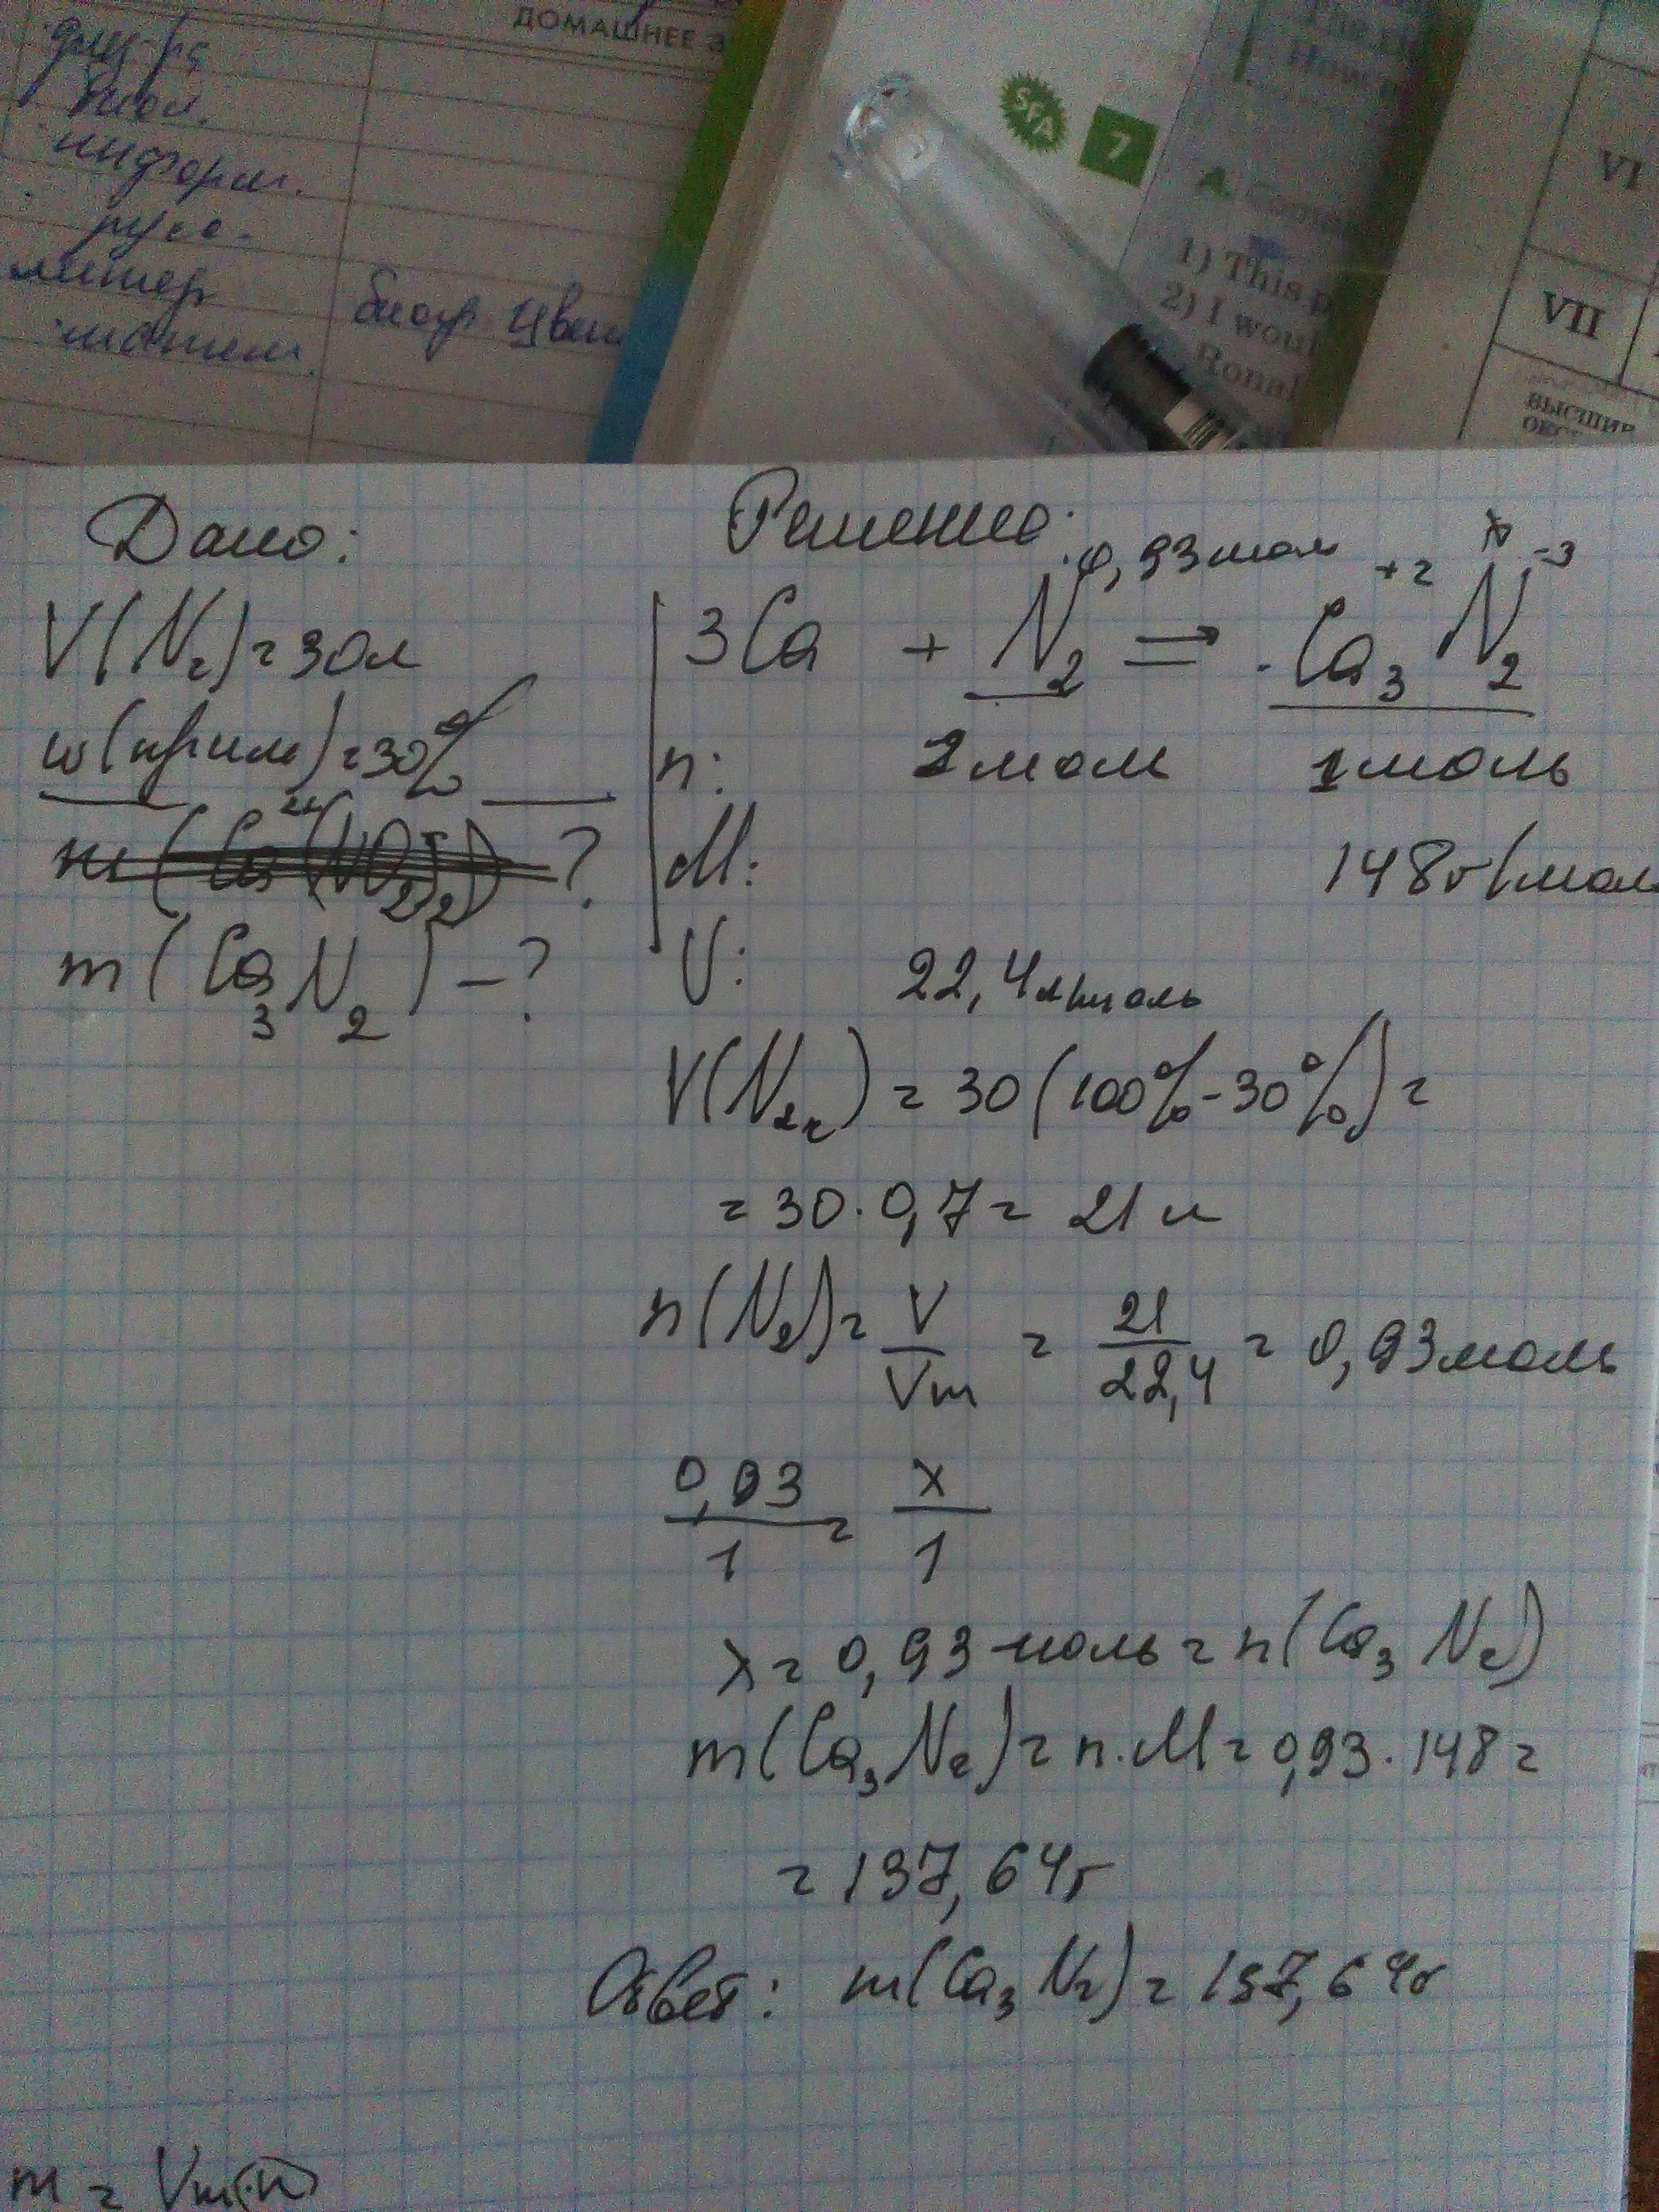 ДОМАШНЕЕ З
биол.
информ.
литер
матем.
SFA
7
1) This p
2) I woul
Ronal
VI
VII
ВЫСШИЕ
Дано:
V(N₂)=30л
w(прим)=30%
m(Ca₃N₂)-?
Решение:
0,93моль +2 -3
3Ca + N₂ => Ca₃N₂
n: 1моль 1моль
M: 148г/мол
V: 22,4л/моль
V(N₂) = 30(100%-30%) =
= 30·0,7 = 21л
n(N₂) = V/Vm = 21/22,4 = 0,93моль
0,93/1 = x/1
x = 0,93 моль = n(Ca₃N₂)
m(Ca₃N₂) = n·M = 0,93·148 =
= 137,64г
Ответ: m(Ca₃N₂) = 137,64г